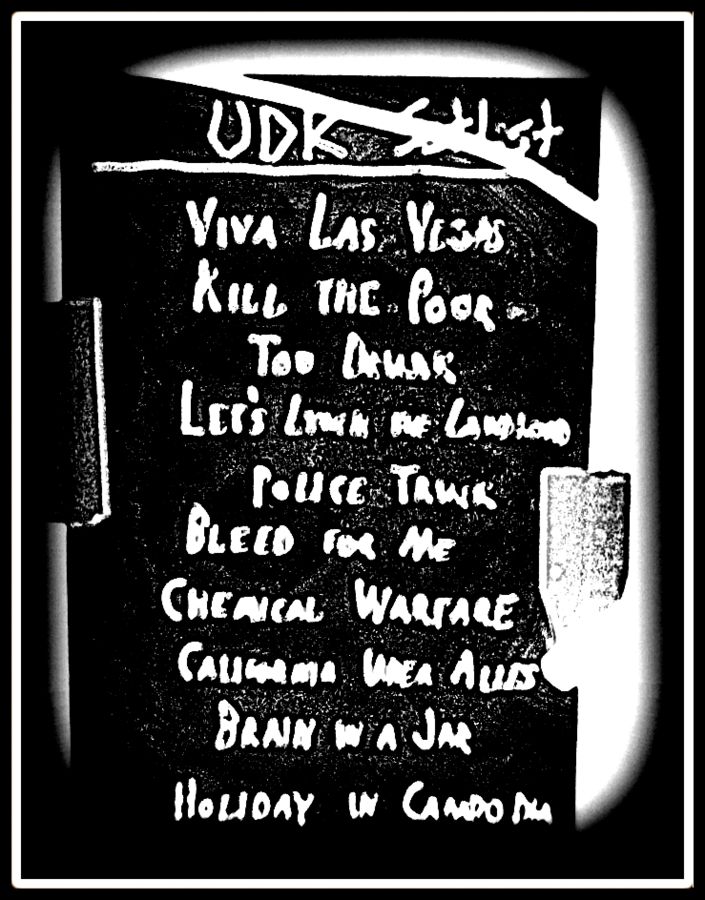 UDK Setlist
VIVA LAS VEGAS
KILL THE POOR
TOO DRUNK
LET'S LYNCH THE LANDLORD
POLICE TRUCK
BLEED FOR ME
CHEMICAL WARFARE
CALIFORNIA UBER ALLES
BRAIN IN A JAR
HOLIDAY IN CAMBODIA